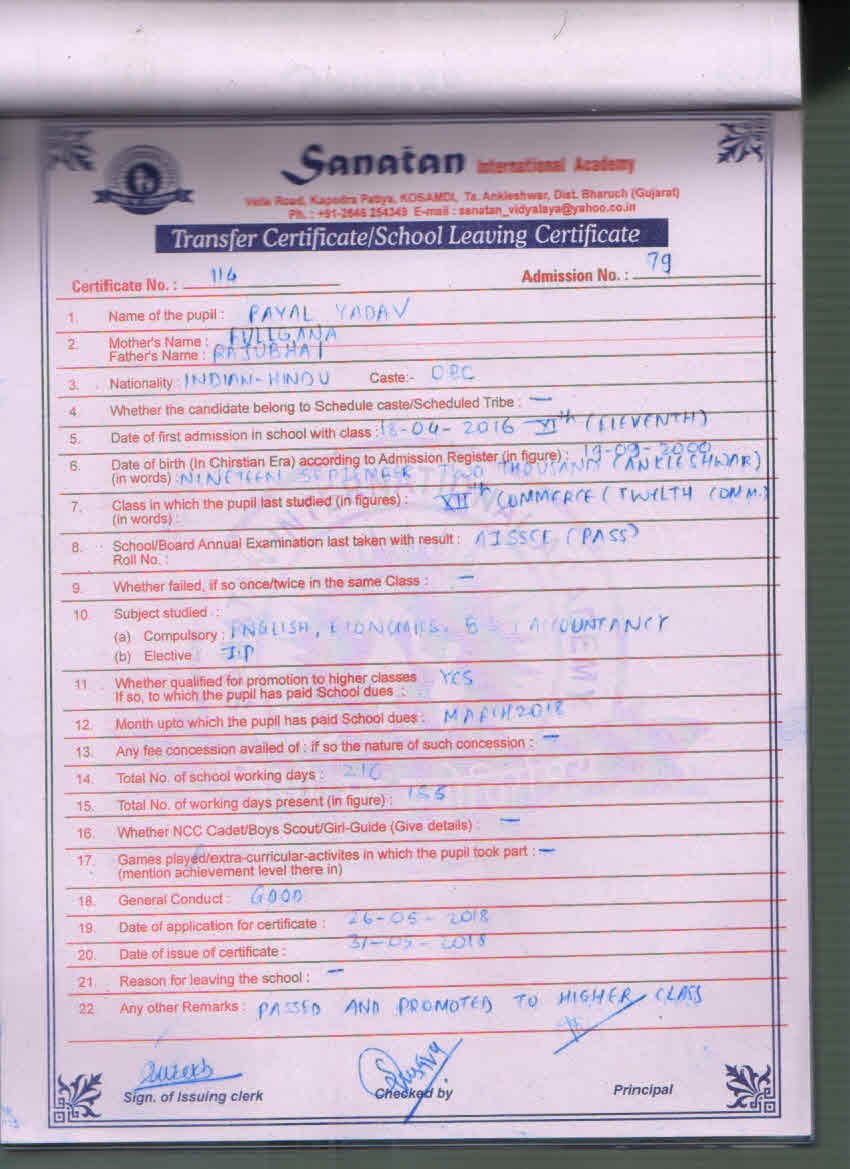 Sanatan International Academy
Valia Road, Kapodra Patiya, KOSAMDI, Ta. Ankleshwar, Dist. Bharuch (Gujarat)
Ph. : +91-2646 254349 E-mail : sanatan_vidyalaya@yahoo.co.in
Transfer Certificate/School Leaving Certificate
Certificate No. : 114 Admission No. : 79
1. Name of the pupil : PAYAL YADAV
2. Mother's Name : FULLGANA
Father's Name : RAJUBHAI
3. Nationality : INDIAN-HINDU Caste:- OBC
4. Whether the candidate belong to Schedule caste/Scheduled Tribe : —
5. Date of first admission in school with class : 18-04-2016 XIth (ELEVENTH)
6. Date of birth (In Chirstian Era) according to Admission Register (in figure) : 19-09-2000
(in words) : NINETEEN SEPTEMBER TWO THOUSAND (ANKLESHWAR)
7. Class in which the pupil last studied (in figures) : XIIth COMMERCE (TWELTH COMM.)
(in words) :
8. School/Board Annual Examination last taken with result : AISSCE (PASS)
Roll No. :
9. Whether failed, if so once/twice in the same Class : —
10. Subject studied :
(a) Compulsory : ENGLISH, ECONOMICS, B.S, ACCOUNTANCY
(b) Elective : I.P
11. Whether qualified for promotion to higher classes YES
If so, to which the pupil has paid School dues :
12. Month upto which the pupil has paid School dues : MARCH 2018
13. Any fee concession availed of : if so the nature of such concession : —
14. Total No. of school working days : 216
15. Total No. of working days present (in figure) : 155
16. Whether NCC Cadet/Boys Scout/Girl-Guide (Give details) : —
17. Games played/extra-curricular-activites in which the pupil took part : —
(mention achievement level there in)
18. General Conduct : GOOD
19. Date of application for certificate : 26-05-2018
20. Date of issue of certificate : 31-05-2018
21. Reason for leaving the school : —
22 Any other Remarks : PASSED AND PROMOTED TO HIGHER CLASS
Sign. of Issuing clerk Checked by Principal